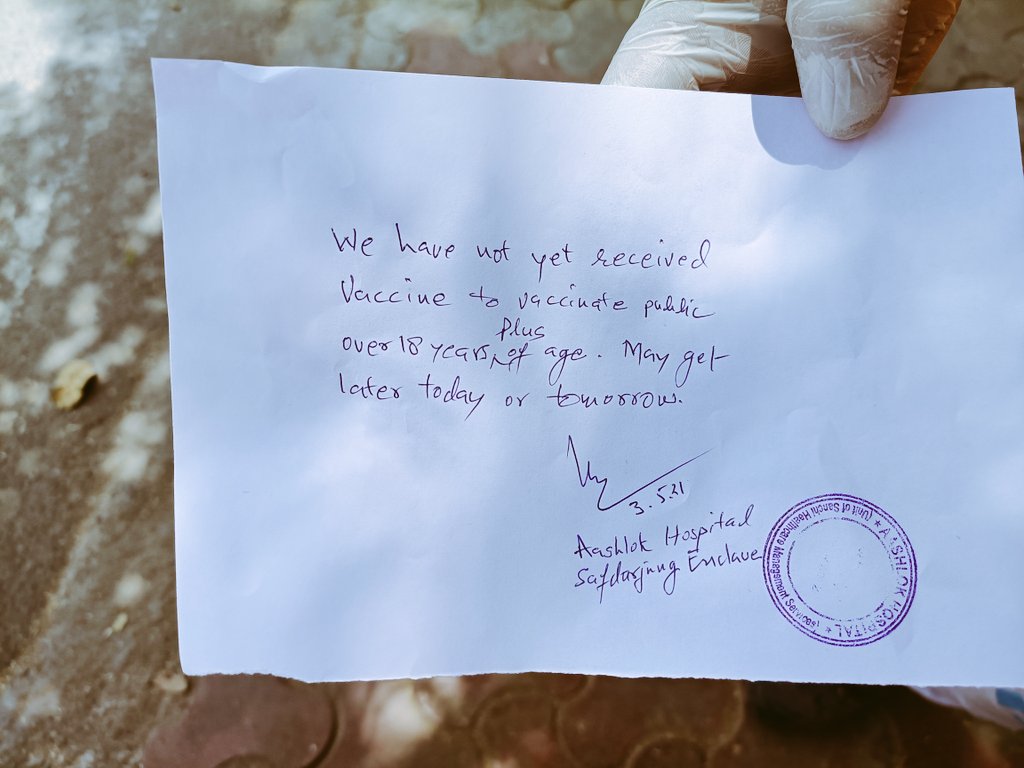 We have not yet received
Vaccine to vaccinate public
over 18 years plus of age. May get
later today or tomorrow.
3.5.21
Aashlok Hospital
Safdarjung Enclave
AASHLOK HOSPITAL
(Unit of Sanchi Healthcare Management Services)